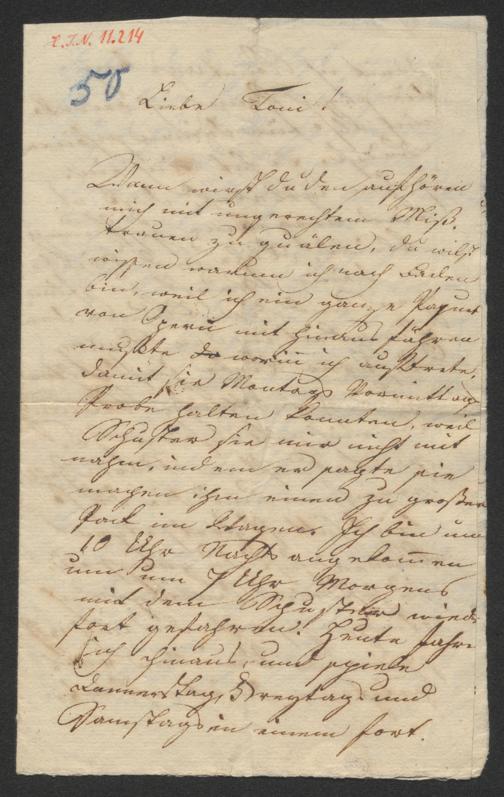 I.N. 11.214
50
Liebe Toni!
Wann wirst du den aufhören
mich mit ungerechtem Miß-
trauen zu quälen, du willst
wissen warum ich nach Baden
bin, weil ich ein ganze
von Opern mit hinaus führen
mußte worin ich auftrete,
damit sie Montags Vormittag
Probe halten konnten, weil
Schuster sie nur nicht mit
nahm, indem er sagte sie
machen ihm einen zu großen
Pack im Wagen. Ich bin um
10 Uhr Nachts angekommen
um um 7 Uhr Morgens
mit dem Schuster wieder
fort gefahren. Heute fahre
ich hinaus, und spiele
Donnerstag, Freytag und
Samstags in einem fort.